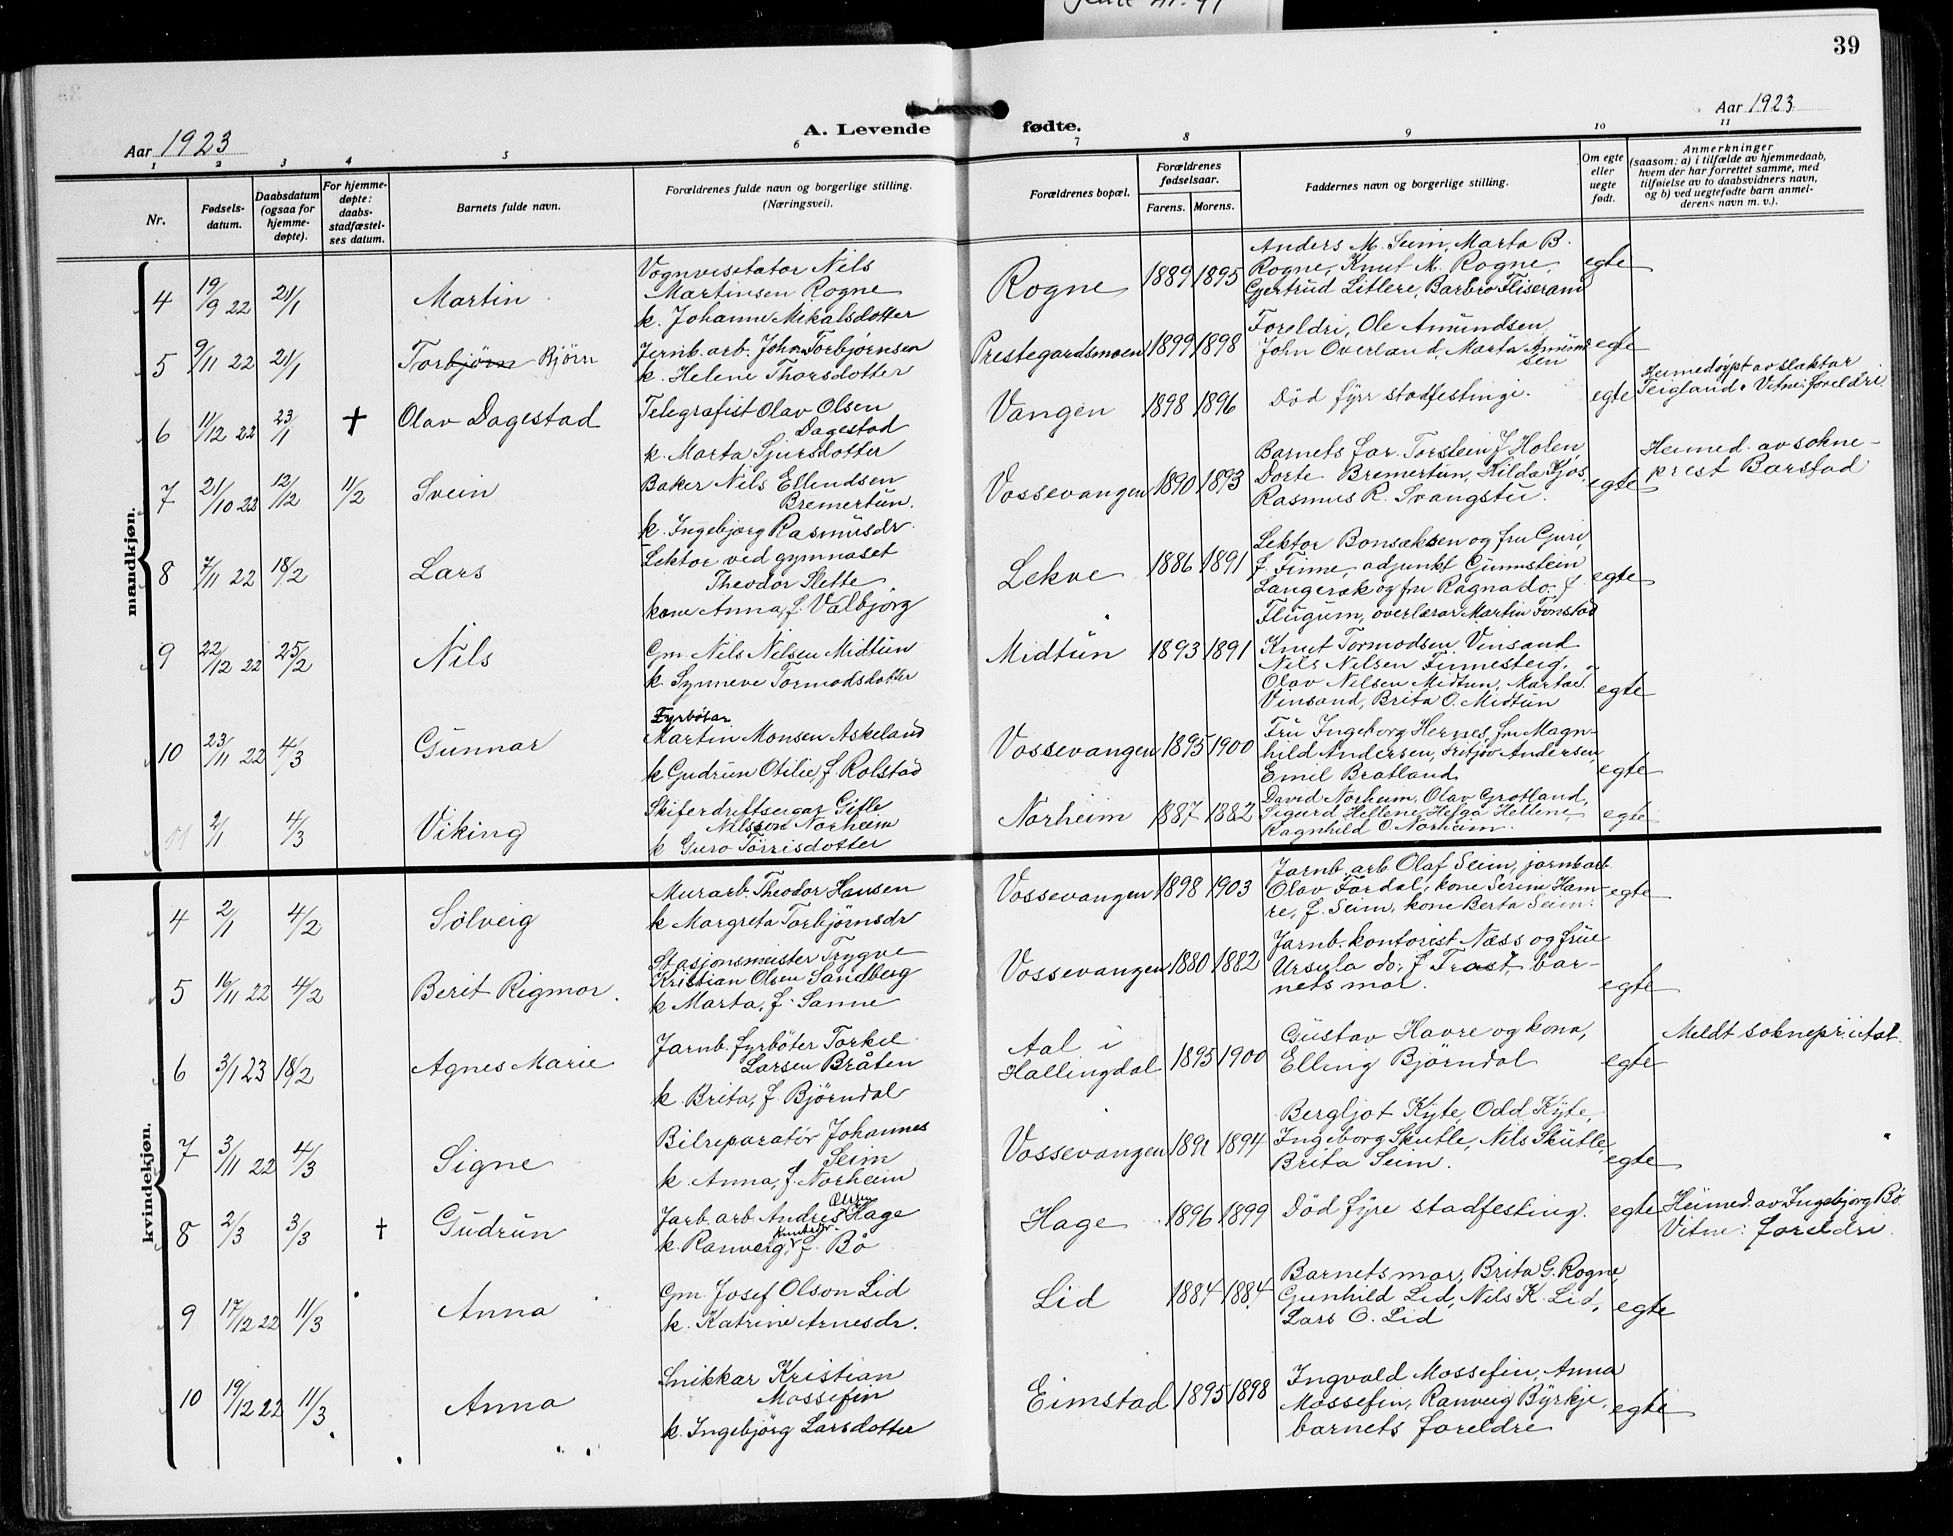 39
Aar 1923
A. Levende fødte.
Aar 1923
1 2 3 4 5 6 7 8 9 10 11
Nr.
Fødsels-
datum.
Daabsdatum
(ogsaa for
hjemme-
døpte).
For hjemme-
døpte:
daabs-
stadfæstel-
ses datum.
Barnets fulde navn.
Forældrenes fulde navn og borgerlige stilling.
(Næringsvei).
Forældrenes bopæl.
Forældrenes
fødselsaar.
Farens. Morens.
Faddernes navn og borgerlige stilling.
Om egte
eller
uegte
født.
Anmerkninger
(saasom: a) i tilfælde av hjemmedaab,
hvem der har forrettet samme, med
tilføielse av to daabsvidners navn,
og b) ved uegtefødte barn anmel-
derens navn m. v.).
mandkjøn.
4 19/9 22 21/1 Martin
Vognvisitator Nils
Martinsen Rogne
k. Johanne Mikalsdotter
Rogne 1889 1895
Anders M. Seim, Marta B.
Rogne, Knut M. Rogne,
Gjertrud Litlere, Barbro Fliserand
egte
5 9/11 22 21/1 Torbjörn Björn
Jernb. arb. John Torbjornsen
k. Helene Thorsdotter
Prestegardsmoen 1899 1898
Foreldri, Ole Amundsen
John Overland, Marta Amund
sen
egte
6 11/12 22 23/1 † Olav Dagestad
Telegrafist Olav Olsen
Dagestad
k. Marta Sjursdotter
Vangen 1898 1896
Död fyrr stadfestingi.
egte
Heimedöypt av slaktar
Teigland. Vitne: foreldri
7 21/10 22 12/12 11/2 Svein
Baker Nils Ellendsen
Bremertun.
k. Ingebjørg Rasmusdr.
Vossevangen 1890 1893
Barnets far. Torstein J Holen,
Dorte Bremertun, Hilda Kjos,
Rasmus R. Svangstu.
egte
Heimed. av sokne-
prest Barstad
8 7/11 22 18/2 Lars
Lektor ved gymnaset
Theodor Slette
kone Anna, f. Valbjörg
Lekve 1886 1891
Lektor Bonsaksen og fru Guri,
f. Finne, adjunkt Gunnstein
Langerak og fru Ragna do. f
Flugum, overlærar Martin Fonstad
egte
9 22/12 22 25/2 Nils
Gm. Nils Nilsen Midtun
k. Synneve Tormodsdotter
Midtun 1893 1891
Knut Tormodsen Vinsand
Nils Nilsen Finnesteig,
Olav Nilsen Midtun, Marta
Vinsand, Brita O. Midtun
egte
10 23/11 22 4/3 Gunnar
Fyrbötar
Martin Monsen Askeland
k Gudrun Otilie f. Rolstad
Vossevangen 1895 1900
Fru Ingeborg Hernes, fru Magn-
hild Andersen, Fritjov Andersen,
Emil Bratland
egte
11 2/1 4/3 Viking
Skiferdriftseigar Gitle
Nilssen Norheim
k Guro Törrisdotter
Norheim 1887 1882
David Norheim, Olav Grotland,
Sigurd Hellene, Helga Hellene,
Ragnhild O. Norheim.
egte
kvindekjøn.
4 2/1 4/2 Solveig
Murarb. Theodor Hansen
k Margreta Torbjörnsdr
Vossevangen 1898 1903
Jarnb. arb Olaf Seim, jarnb arb
Olav Fardal, kone Serine Ham-
re, f. Seim, kone Berta Seim.
egte
5 16/11 22 4/2 Berit Rigmor.
Stasjonsmeister Trygve
Kristian Olsen Sandberg
k Marta, f. Sanne
Vossevangen 1880 1882
Jarnb. kontorist Næss og frue
Ursula do: f Trast, bar-
nets mor.
egte
6 3/1 23 18/2 Agnes Marie
Jarnb. fyrböter Torkel
Larsen Bråten
k. Brita, f. Björndal
Aal i
Hallingdal 1895 1900
Gustav Havre og kona,
Elling Björndal
egte
Meldt soknepr. i Aal.
7 3/11 22 4/3 Signe
Bilreparatör Johannes
Seim
k. Anna, f. Norheim
Vossevangen 1891 1894
Bergljot Kyte, Odd Kyte,
Ingeborg Skutle, Nils Skutle,
Brita Seim.
egte
8 2/3 3/3 † Gudrun
Olsen
Jarb. arb Andres Hage
Knutsdr.
k. Ranveig, f. Bö
Hage 1896 1899
Död fyre stadfesting.
egte
Heimed. av Ingebjörg Bö.
Vitne: foreldri.
9 17/12 22 11/3 Anna
Gm. Josef Olson Lid
k. Katrine Arnesdr.
Lid 1884 1884
Barnets mor, Brita G. Rogne,
Gunhild Lid, Nils K. Lid,
Lars O. Lid
egte
10 19/12 22 11/3 Anna
Snikkar Kristian
Mossefin
k. Ingebjörg Larsdotter
Eimstad 1895 1898
Ingvald Mossefin, Anna
Mossefin, Ranveig Byrkje,
barnets foreldre
egte